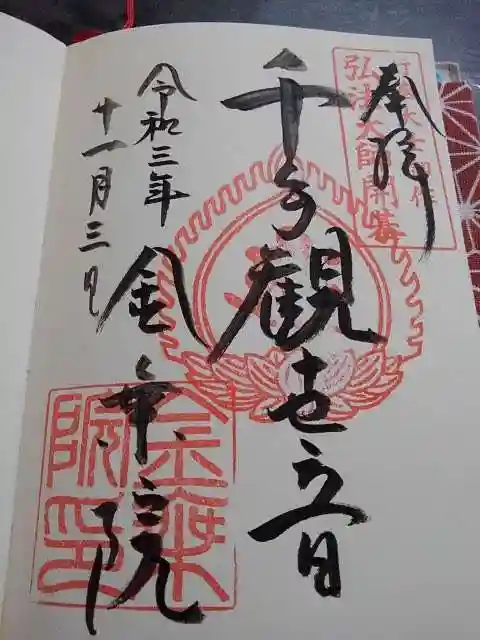 奉拝
弘法大師開基
千手観世音
令和三年
十一月三日
金乗院
金乗院印